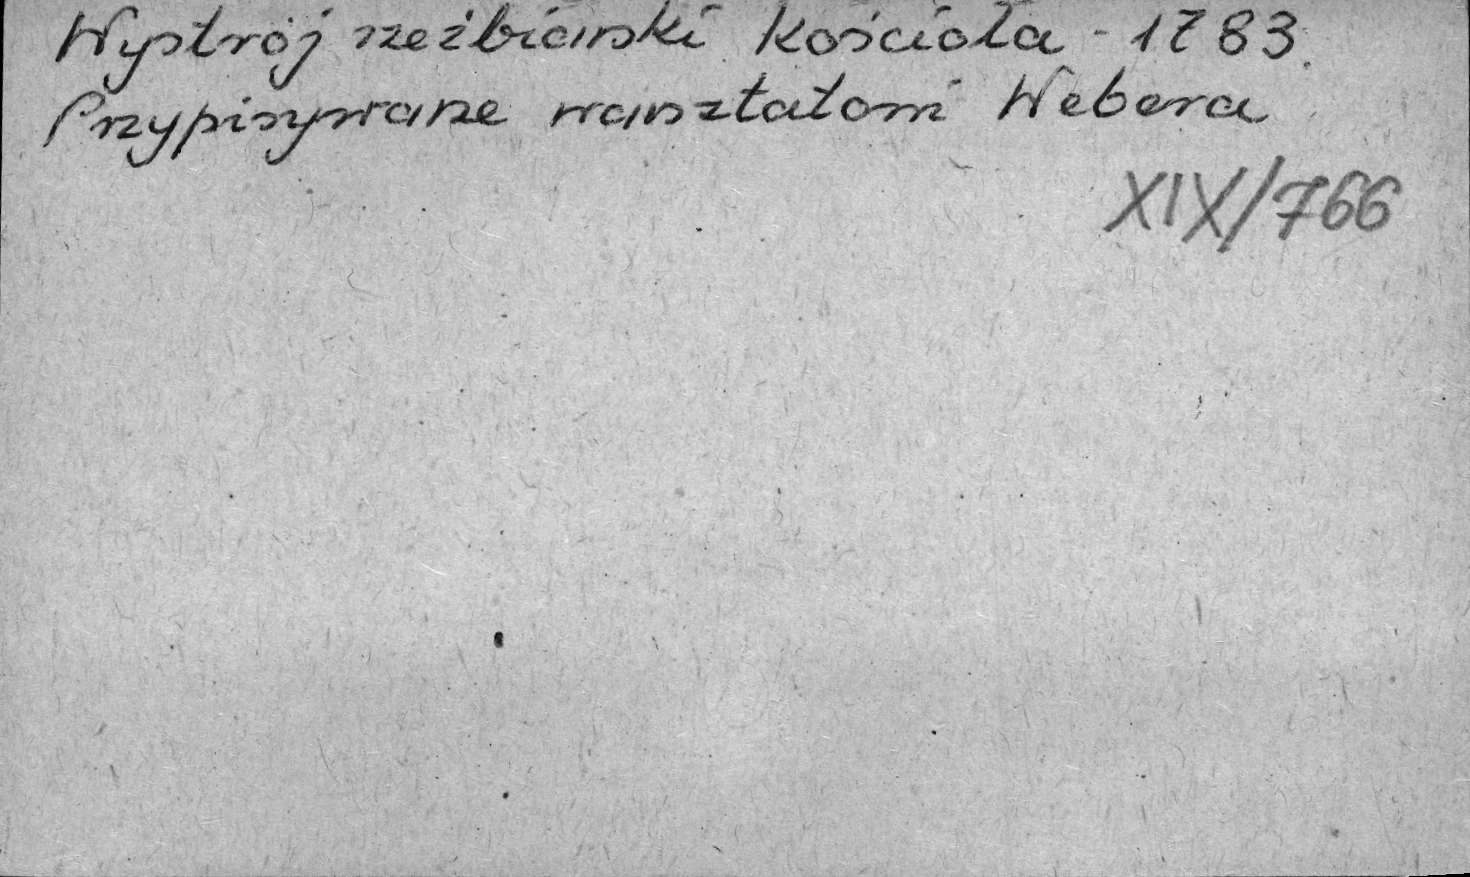 Wystrój rzeźbiarski kościoła - 1783.
Przypisywane warsztatowi Webera
XIX/766